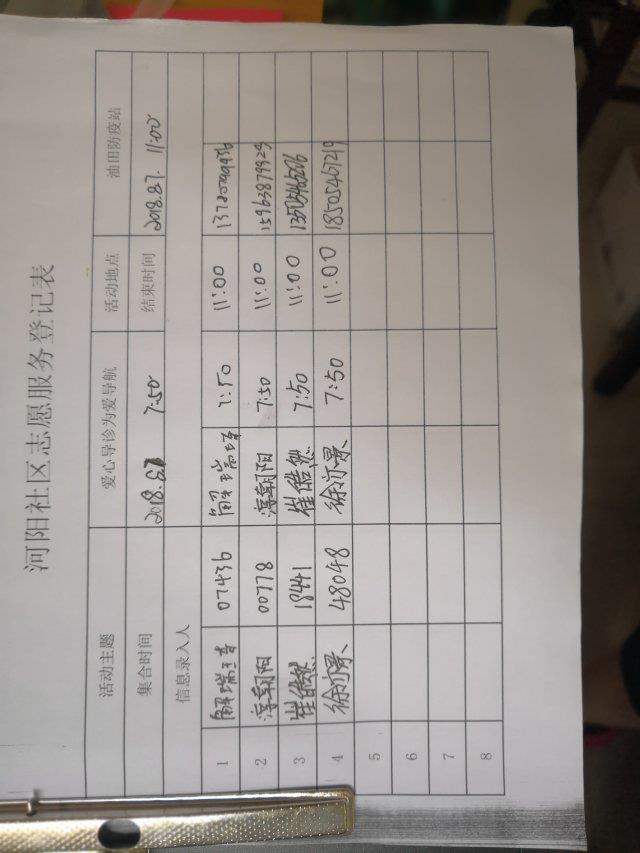 河阳社区志愿服务登记表
活动主题 爱心导诊为爱导航 活动地点 油田防疫站
集合时间 2018.8.7 7:50 结束时间 2018.8.7. 11:00
信息录入人
1 解瑞 07436 解瑞 7:50 11:00
2 淳朝阳 00778 淳朝阳 7:50 11:00 15963879929
3 崔皓然 18441 崔皓然 7:50 11:00
4 徐沛景 48048 徐沛景 7:50 11:00 18505467219
5
6
7
8